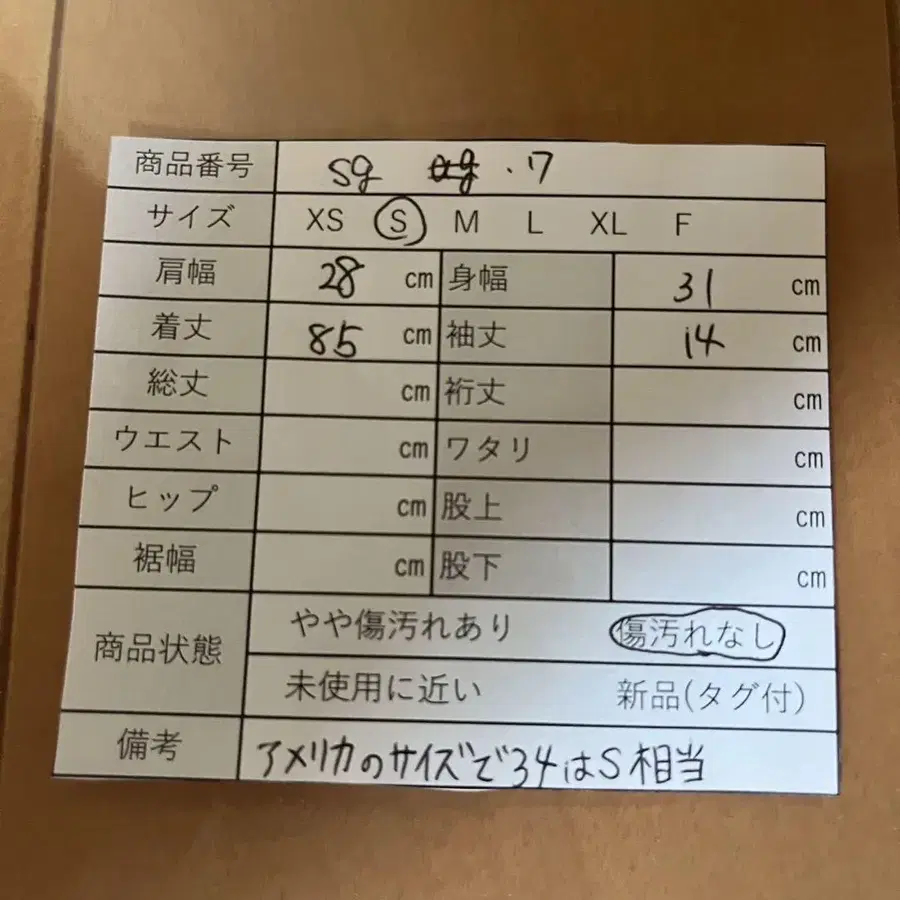 商品番号 sg .7
サイズ XS S M L XL F
肩幅 28 cm 身幅 31 cm
着丈 85 cm 袖丈 14 cm
総丈 cm 裄丈 cm
ウエスト cm ワタリ cm
ヒップ cm 股上 cm
裾幅 cm 股下 cm
商品状態 やや傷汚れあり 傷汚れなし
未使用に近い 新品(タグ付)
備考 アメリカのサイズで34はS相当